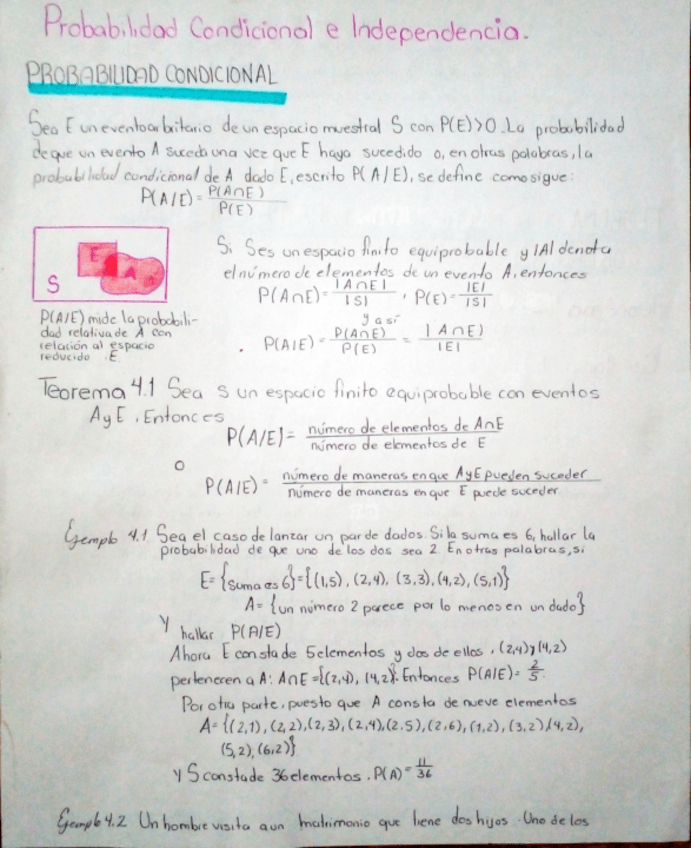 Probabilidad Condicional e Independencia.
PROBABILIDAD CONDICIONAL
Sea E un evento arbitario de un espacio muestral S con P(E)>0. La probabilidad
de que un evento A suceda una vez que E haya sucedido o, en otras palabras, la
probabilidad condicional de A dado E, escrito P(A/E), se define como sigue:
P(A/E) = P(A∩E) / P(E)
S E A
P(A/E) mide la probabili-
dad relativa de A con
relación al espacio
reducido E.
Si S es un espacio finito equiprobable y |A| denota
el número de elementos de un evento A, entonces
P(A∩E) = |A∩E| / |S| , P(E) = |E| / |S|
y así
P(A|E) = P(A∩E) / P(E) = |A∩E| / |E|
Teorema 4.1 Sea S un espacio finito equiprobable con eventos
A y E. Entonces
P(A/E) = número de elementos de A∩E / número de elementos de E
O
P(A|E) = número de maneras en que A y E pueden suceder / número de maneras en que E puede suceder
Ejemplo 4.1 Sea el caso de lanzar un par de dados. Si la suma es 6, hallar la
probabilidad de que uno de los dos sea 2. En otras palabras, si
E = {suma es 6} = {(1,5), (2,4), (3,3), (4,2), (5,1)}
A = {un número 2 parece por lo menos en un dado}
Y hallar P(A/E)
Ahora E consta de 5 elementos y dos de ellos, (2,4) y (4,2)
pertenecen a A: A∩E = {(2,4), (4,2)}. Entonces P(A/E) = 2/5.
Por otra parte, puesto que A consta de nueve elementos
A = {(2,1), (2,2), (2,3), (2,4), (2,5), (2,6), (1,2), (3,2), (4,2),
(5,2), (6,2)}
Y S consta de 36 elementos, P(A) = 11/36
Ejemplo 4.2 Un hombre visita a un matrimonio que tiene dos hijos. Uno de los